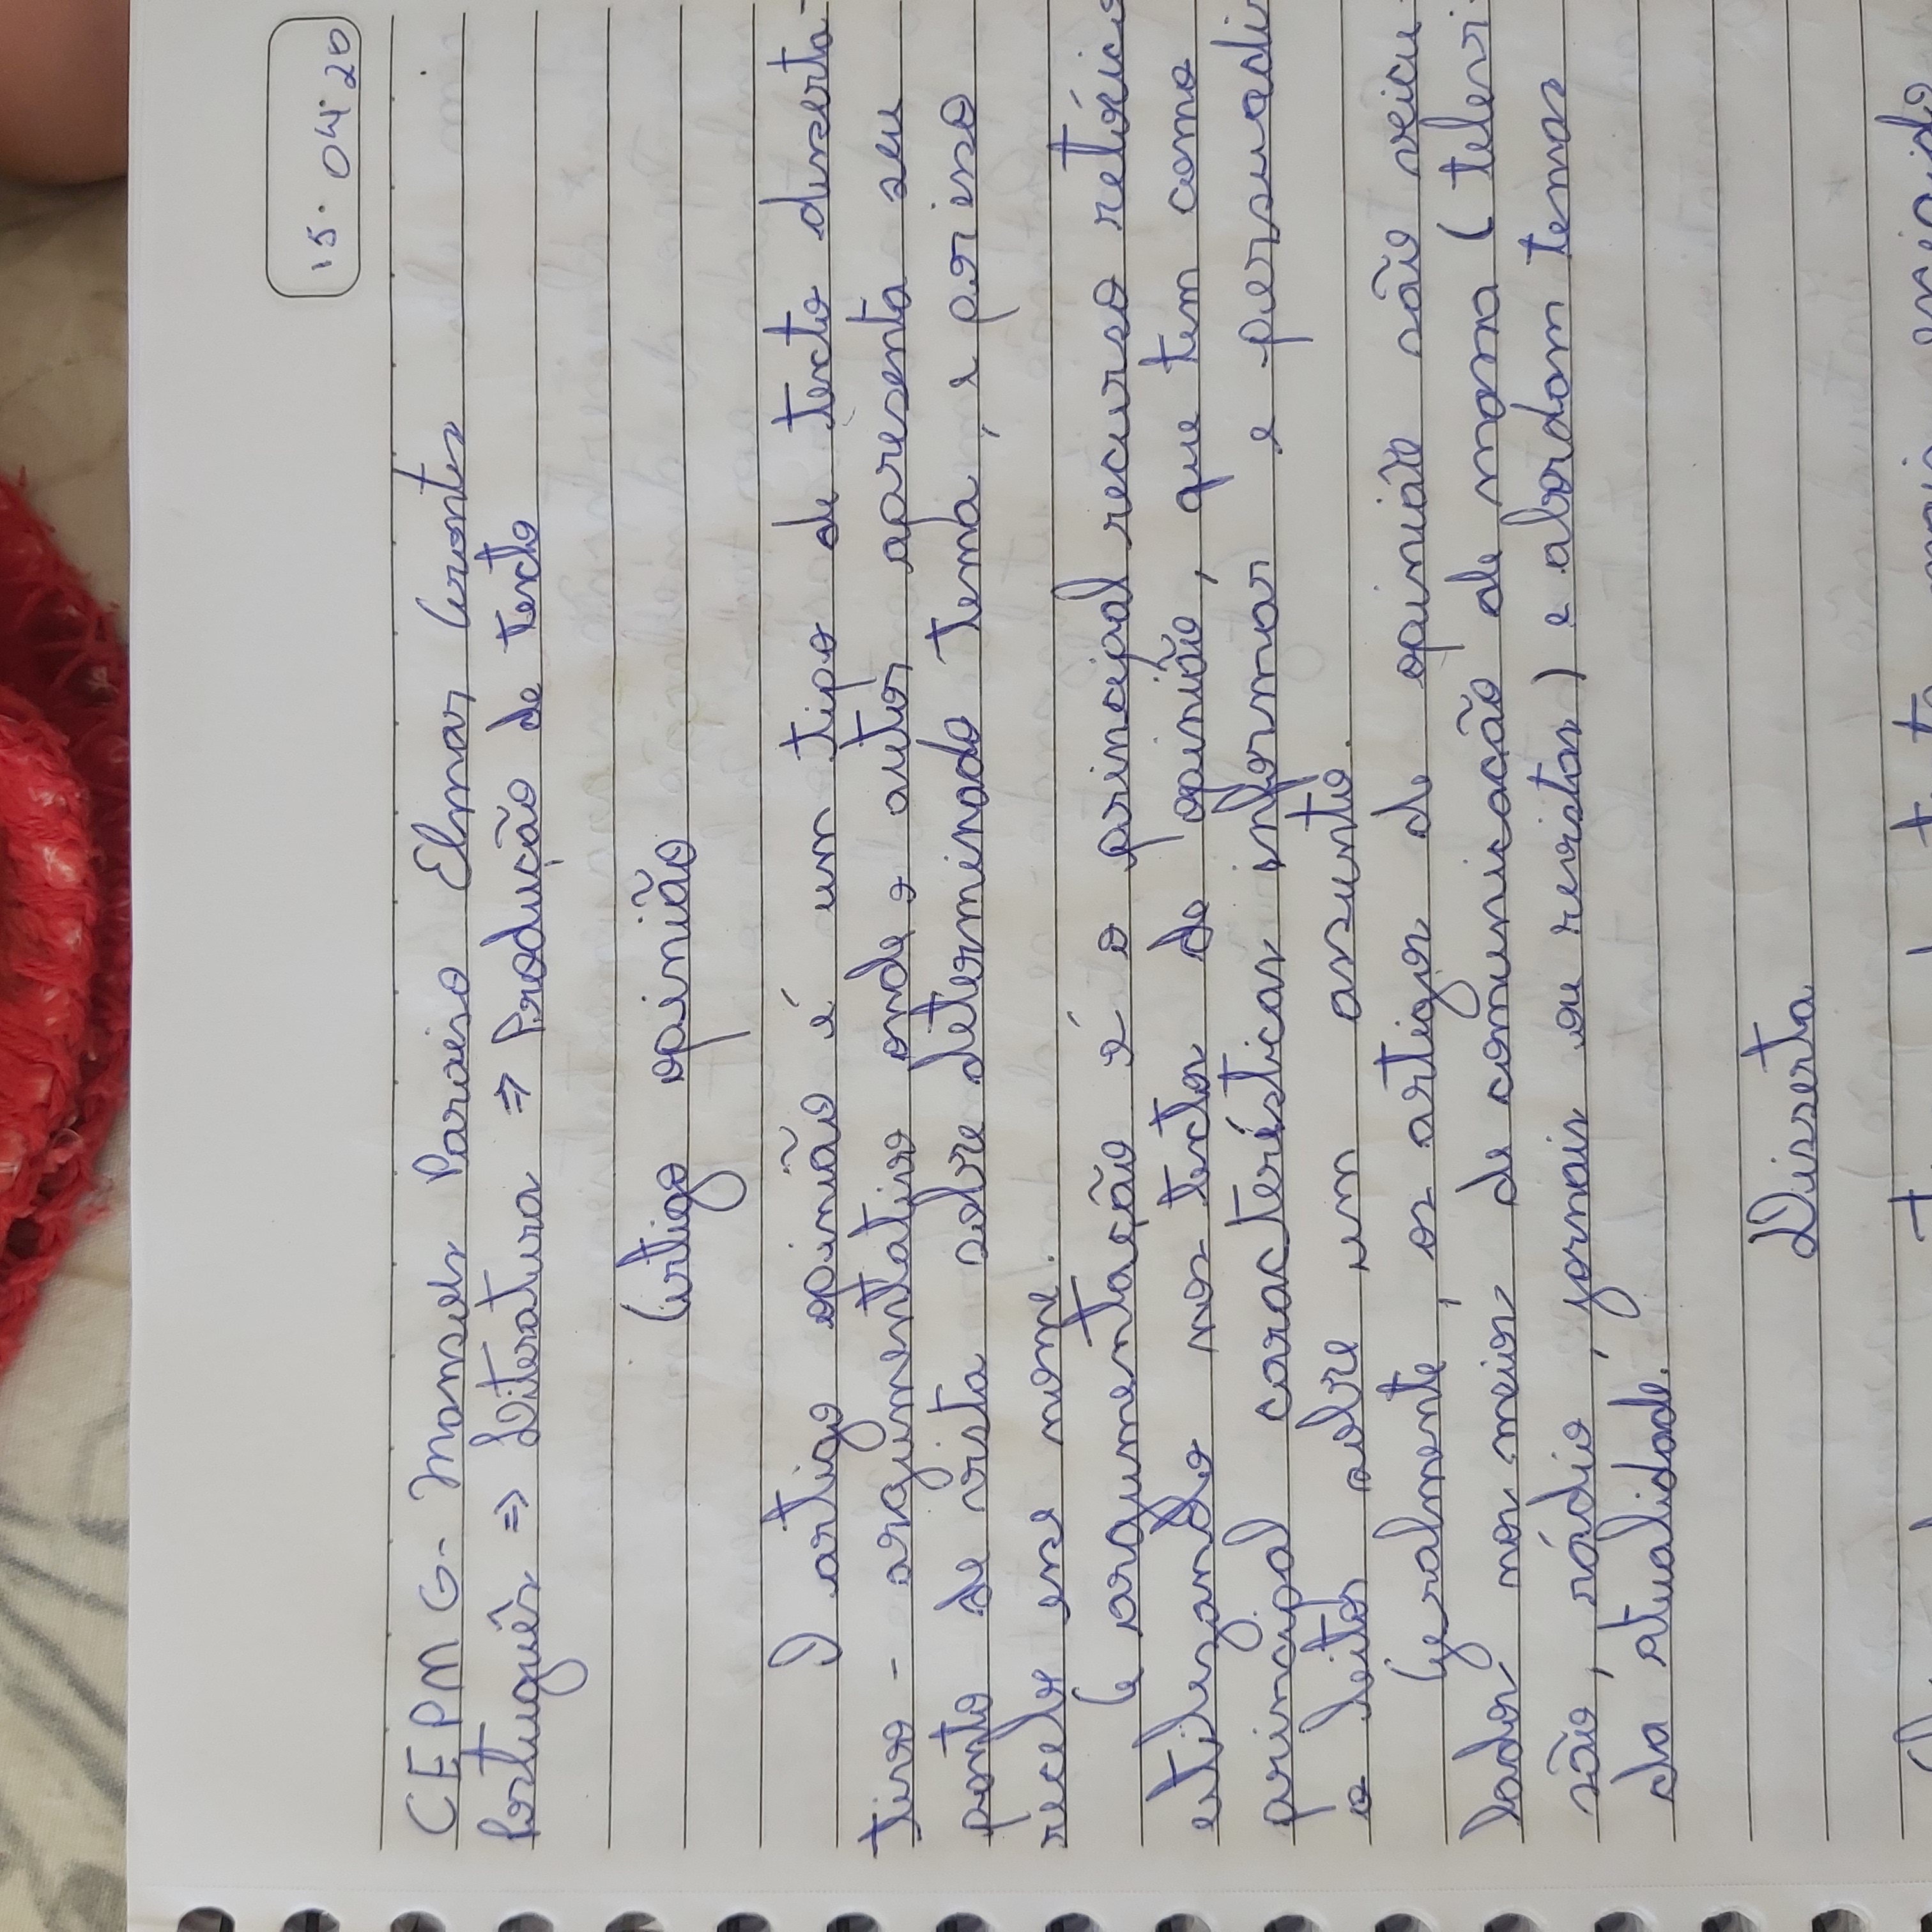 15. 04. 20
CEPMG - Mansões Paraiso Elmar Arantes
Português => Literatura => Produção de texto
Artigo opinião
O artigo opinião é um tipo de texto disserta-
tivo - argumentativo onde o autor apresenta seu
ponto de vista sobre determinado tema, e por isso
recebe esse nome.
A argumentação é o principal recurso retórico
utilizando nos textos de opinião, que tem como
principal características informar e persuadir
o leitor sobre um assunto.
Geralmente, os artigos de opinião são veicu-
lados nos meios de comunicação de massa ( televi-
são, rádio, jornais ou revistas ) e abordam temas
da atualidade.
Disserta
texto mais exigido